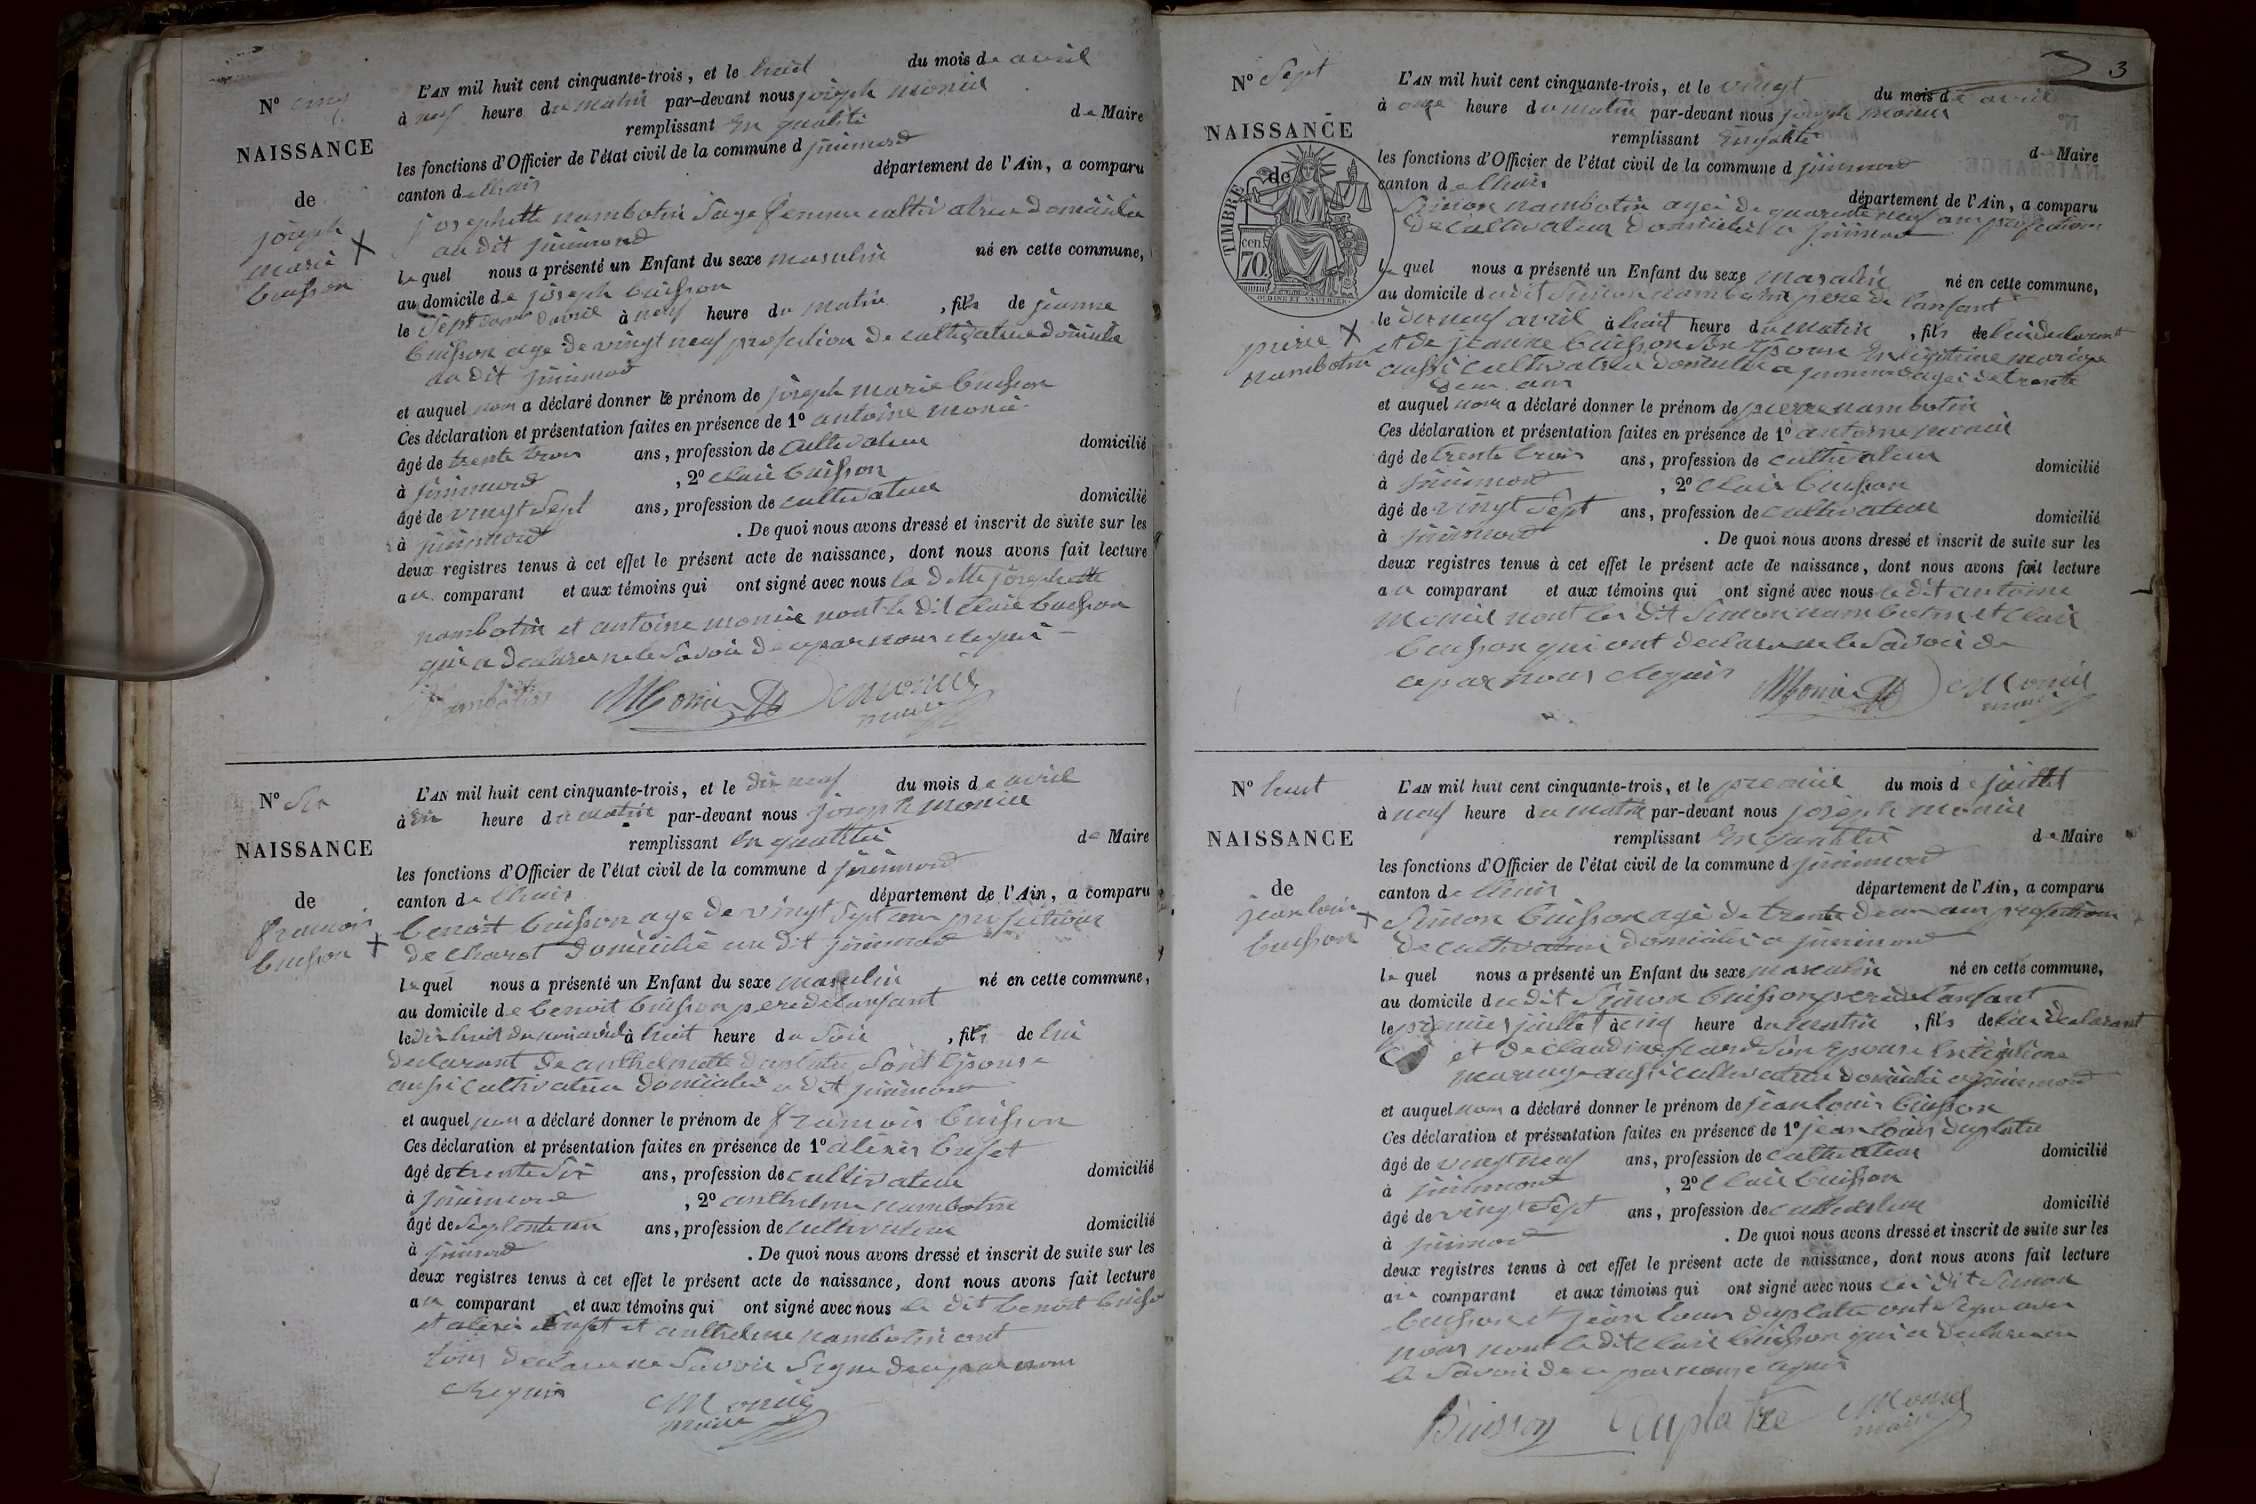 N° cinq
NAISSANCE
de
joseph
marie
buisson
L'AN mil huit cent cinquante-trois, et le huit du mois de avril
à neuf heure du matin par-devant nous joseph monier
remplissant en qualité de Maire
les fonctions d'Officier de l'état civil de la commune d jujurieux
canton de lhuis département de l'Ain, a comparu
josephette nambotin sage femme cultivatrice domiciliée
au dit
lequel nous a présenté un Enfant du sexe masculin né en cette commune,
au domicile de joseph buisson
le sept avril à neuf heure du matin, fils de jeanne
buisson age de vingt neuf profession de cultivatrice domiciliée
au dit
et auquel nous a déclaré donner le prénom de joseph marie buisson
Ces déclaration et présentation faites en présence de 1° antoine monier
âgé de trente trois ans, profession de cultivateur domicilié
à , 2° clair buisson
âgé de vingt sept ans, profession de cultivateur domicilié
à . De quoi nous avons dressé et inscrit de suite sur les
deux registres tenus à cet effet le présent acte de naissance, dont nous avons fait lecture
au comparant et aux témoins qui ont signé avec nous la dette josephette
nambotin et antoine monier nont le dit clair buisson
qui a declare ne le savoir de ce par nous requis
Nambotin Monier Monier
maire
N° six
NAISSANCE
de
francois
buisson
L'AN mil huit cent cinquante-trois, et le dix neuf du mois de avril
à heure du matin par-devant nous joseph monier
remplissant en qualité de Maire
les fonctions d'Officier de l'état civil de la commune d
canton de lhuis département de l'Ain, a comparu
benoit buisson age de vingt sept ans profession
de domicilié au dit
lequel nous a présenté un Enfant du sexe masculin né en cette commune,
au domicile de benoit buisson pere de lanfant
le dix huit du mois avril à huit heure du soir, fils de lui
declarant de anthelmette duplatre sont epouse
aussi cultivatrice domicilié a dit
et auquel nous a déclaré donner le prénom de francois buisson
Ces déclaration et présentation faites en présence de 1° alexis buset
âgé de trente six ans, profession de cultivateur domicilié
à , 2° anthelme nambotin
âgé de ans, profession de cultivateur domicilié
à . De quoi nous avons dressé et inscrit de suite sur les
deux registres tenus à cet effet le présent acte de naissance, dont nous avons fait lecture
au comparant et aux témoins qui ont signé avec nous le dit benoit buisson
et alexis buset et anthelme nambotin ont
tous declare ne savoir signe de ce par nous
requis
Monier
maire
3
N° sept
NAISSANCE
de
TIMBRE
cen
70
OUDINÉ ET VAUTHIER
pierre
nambotin
L'AN mil huit cent cinquante-trois, et le vingt du mois de avril
à onze heure du matin par-devant nous joseph monier
remplissant en qualité de Maire
les fonctions d'Officier de l'état civil de la commune d
canton de lhuis département de l'Ain, a comparu
Simon nambotin agée de quarante neuf ans profession
de cultivateur domicilié a
lequel nous a présenté un Enfant du sexe masculin né en cette commune,
au domicile du dit Simon nambotin pere de lanfant
le dix neuf avril à huit heure du matin, fils de lui declarant
et de jeanne buisson son epouse en legitime mariage
aussi cultivatrice domicilié a agée de trente
deux ans
et auquel nous a déclaré donner le prénom de pierre nambotin
Ces déclaration et présentation faites en présence de 1° antoine monier
âgé de trente trois ans, profession de cultivateur domicilié
à , 2° clair buisson
âgé de vingt sept ans, profession de cultivateur domicilié
à . De quoi nous avons dressé et inscrit de suite sur les
deux registres tenus à cet effet le présent acte de naissance, dont nous avons fait lecture
au comparant et aux témoins qui ont signé avec nous le dit antoine
monier nont les dit Simon nambotin et clair
buisson qui ont declare ne le savoir de
ce par nous requis
Monier Monier
maire
N° huit
NAISSANCE
de
jean louis
buisson
L'AN mil huit cent cinquante-trois, et le premier du mois de juillet
à neuf heure du matin par-devant nous joseph monier
remplissant en qualité de Maire
les fonctions d'Officier de l'état civil de la commune d
canton de lhuis département de l'Ain, a comparu
Simon buisson agé de trente deux ans profession
de cultivateur domicilié a
lequel nous a présenté un Enfant du sexe masculin né en cette commune,
au domicile du dit Simon buisson pere de lanfant
le premier juillet à cinq heure du matin, fils de lui declarant
et de claudine son epouse en legitime
mariage aussi cultivatrice domicilié a
et auquel nous a déclaré donner le prénom de jean louis buisson
Ces déclaration et présentation faites en présence de 1° jean louis duplatre
âgé de vingt neuf ans, profession de cultivateur domicilié
à , 2° clair buisson
âgé de vingt sept ans, profession de cultivateur domicilié
à . De quoi nous avons dressé et inscrit de suite sur les
deux registres tenus à cet effet le présent acte de naissance, dont nous avons fait lecture
au comparant et aux témoins qui ont signé avec nous les dit Simon
buisson et jean louis duplatre ont signe avec
nous nont le dit clair buisson qui a declare ne
le savoir de ce par nous requis
Buisson Duplatre Monier
maire